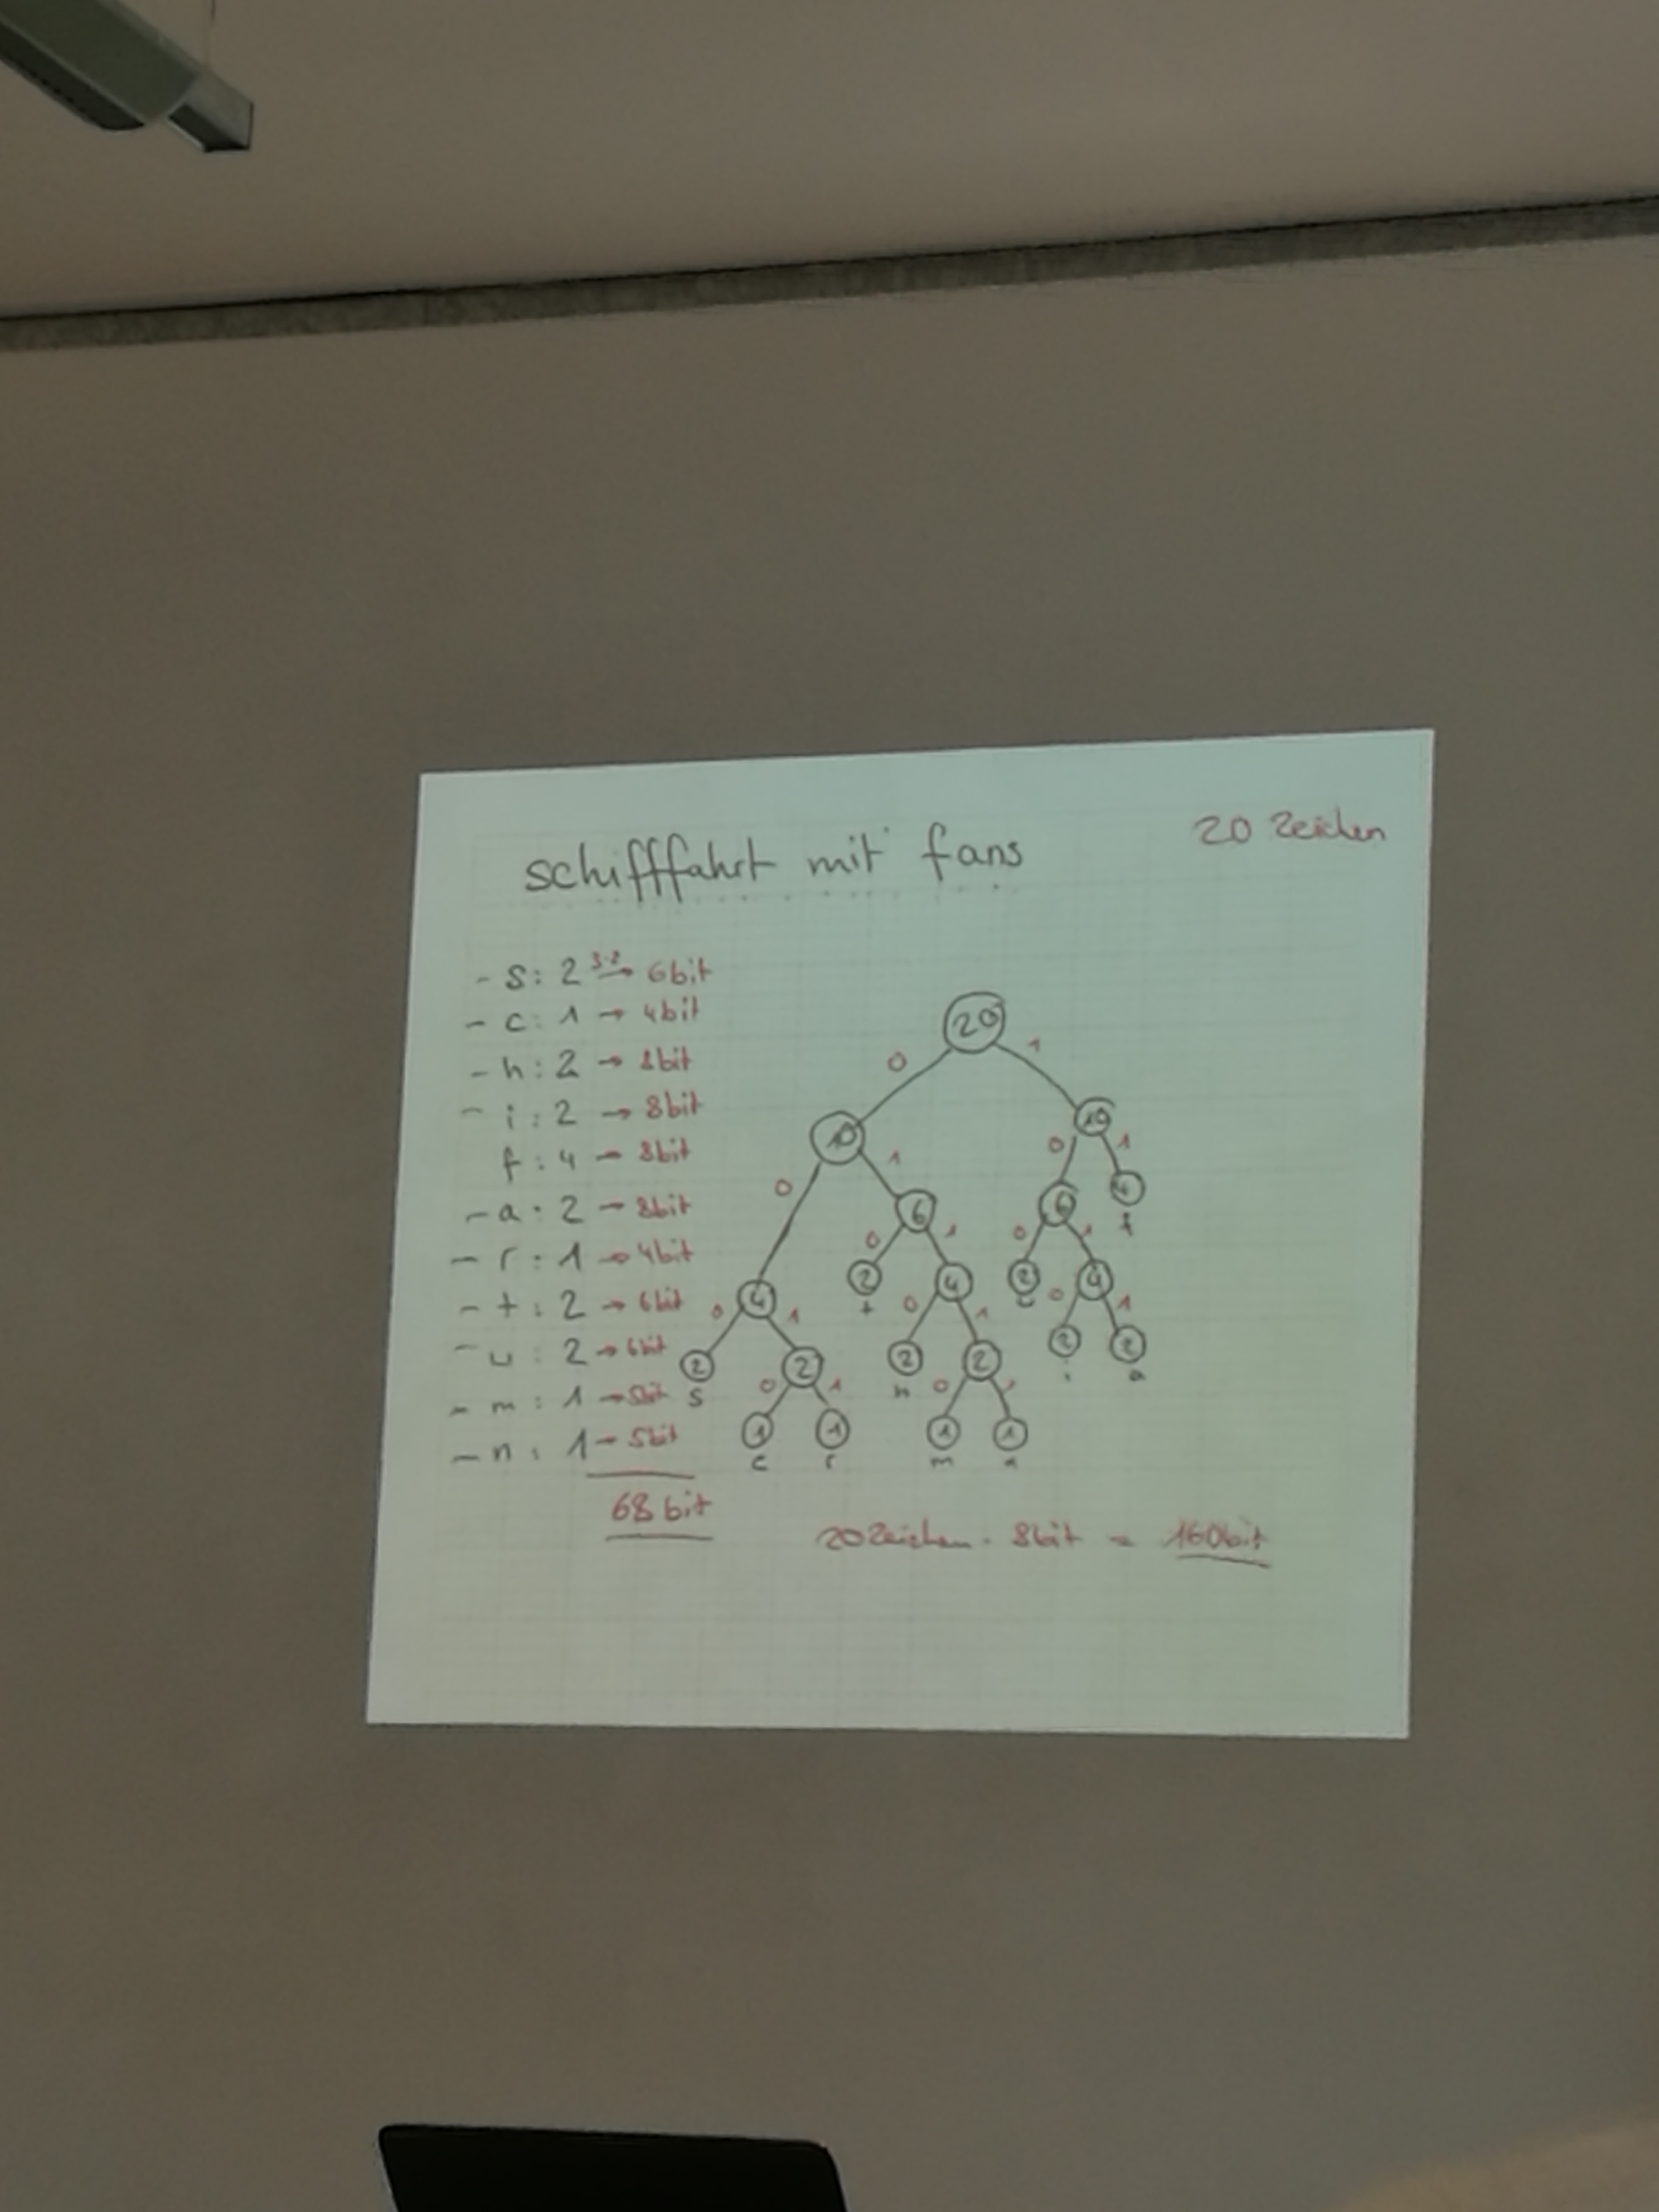 schifffahrt mit fans
20 Zeichen
- s: 2 3·2→ 6bit
- c: 1 → 4bit
- h: 2 → 8bit
- i: 2 → 8bit
f: 4 → 8bit
- a: 2 → 8bit
- r: 1 → 4bit
- t: 2 → 6bit
- ␣: 2 → 6bit
- m: 1 → 5bit
- n: 1 → 5bit
68 bit
20
0 1
10 10
0 1 0 1
6 6 4
f
0 1 0 1
4 2 4 2 4
t ␣
0 1 0 1 0 1
2 2 2 2 2 2
s h i a
0 1 0 1
1 1 1 1
c r m n
20 Zeichen · 8bit = 160bit